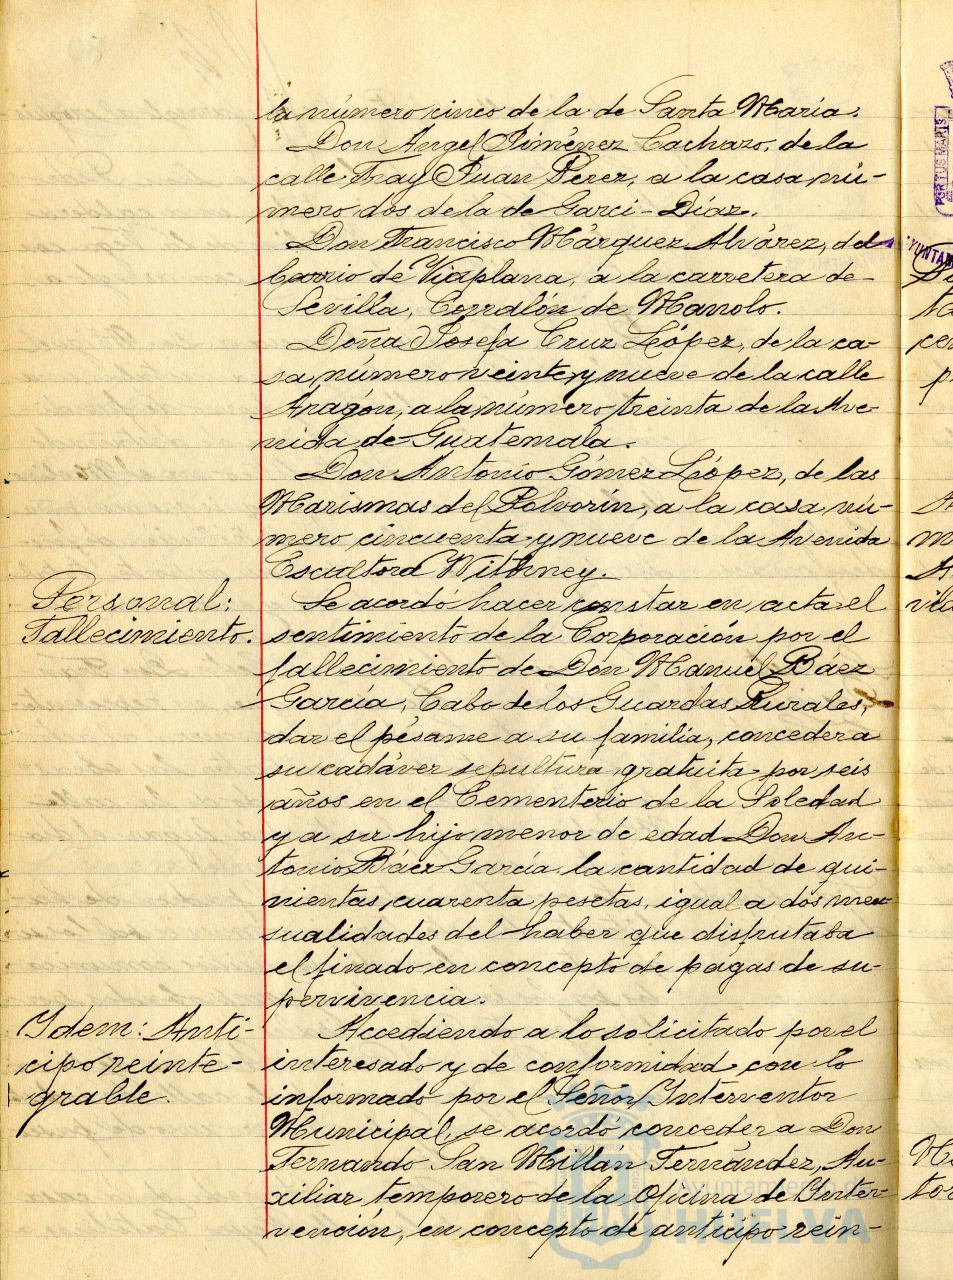 la número cinco de la de Santa María.
Don Angel Jiménez Cachazo, de la
calle Fray Juan Pérez, a la casa nú-
mero dos de la de Garci-Díaz.
Don Francisco Márquez Alvárez, del
barrio de Viaplana, a la carretera de
Sevilla, Corralón de Manolo.
Doña Josefa Cruz López, de la ca-
sa número veinte y nueve de la calle
Aragón, a la número treinta de la Ave-
nida de Guatemala.
Don Antonio Gómez López, de las
Marismas del Polvorín, a la casa nú-
mero cincuenta y nueve de la Avenida
Escultora Withney.
Personal:
Fallecimiento.
Se acordó hacer constar en acta el
sentimiento de la Corporación por el
fallecimiento de Don Manuel Báez
García, Cabo de los Guardas Rurales,
dar el pésame a su familia, conceder a
su cadáver sepultura gratuita por seis
años en el Cementerio de la Soledad
y a su hijo menor de edad Don An-
tonio Báez García la cantidad de qui-
nientas cuarenta pesetas, igual a dos men-
sualidades del haber que disfrutaba
el finado en concepto de pagas de su-
pervivencia.
Idem: Anti-
cipo reinte-
grable.
Accediendo a lo solicitado por el
interesado y de conformidad con lo
informado por el Señor Interventor
Municipal, se acordó conceder a Don
Fernando San Millán Fernández, Au-
xiliar temporero de la Oficina de Inter-
vención, en concepto de anticipo rein-
Ayuntamiento de
HUELVA
PORTUS MARIS